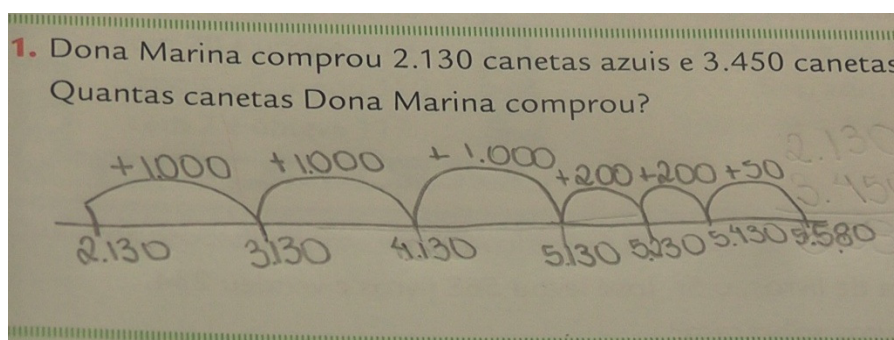 1. Dona Marina comprou 2.130 canetas azuis e 3.450 canetas
Quantas canetas Dona Marina comprou?
2.130
+1.000 +1.000 + 1.000 +200 +200 +50
2.130 3.130 4.130 5.130 5.230 5.430 5.580